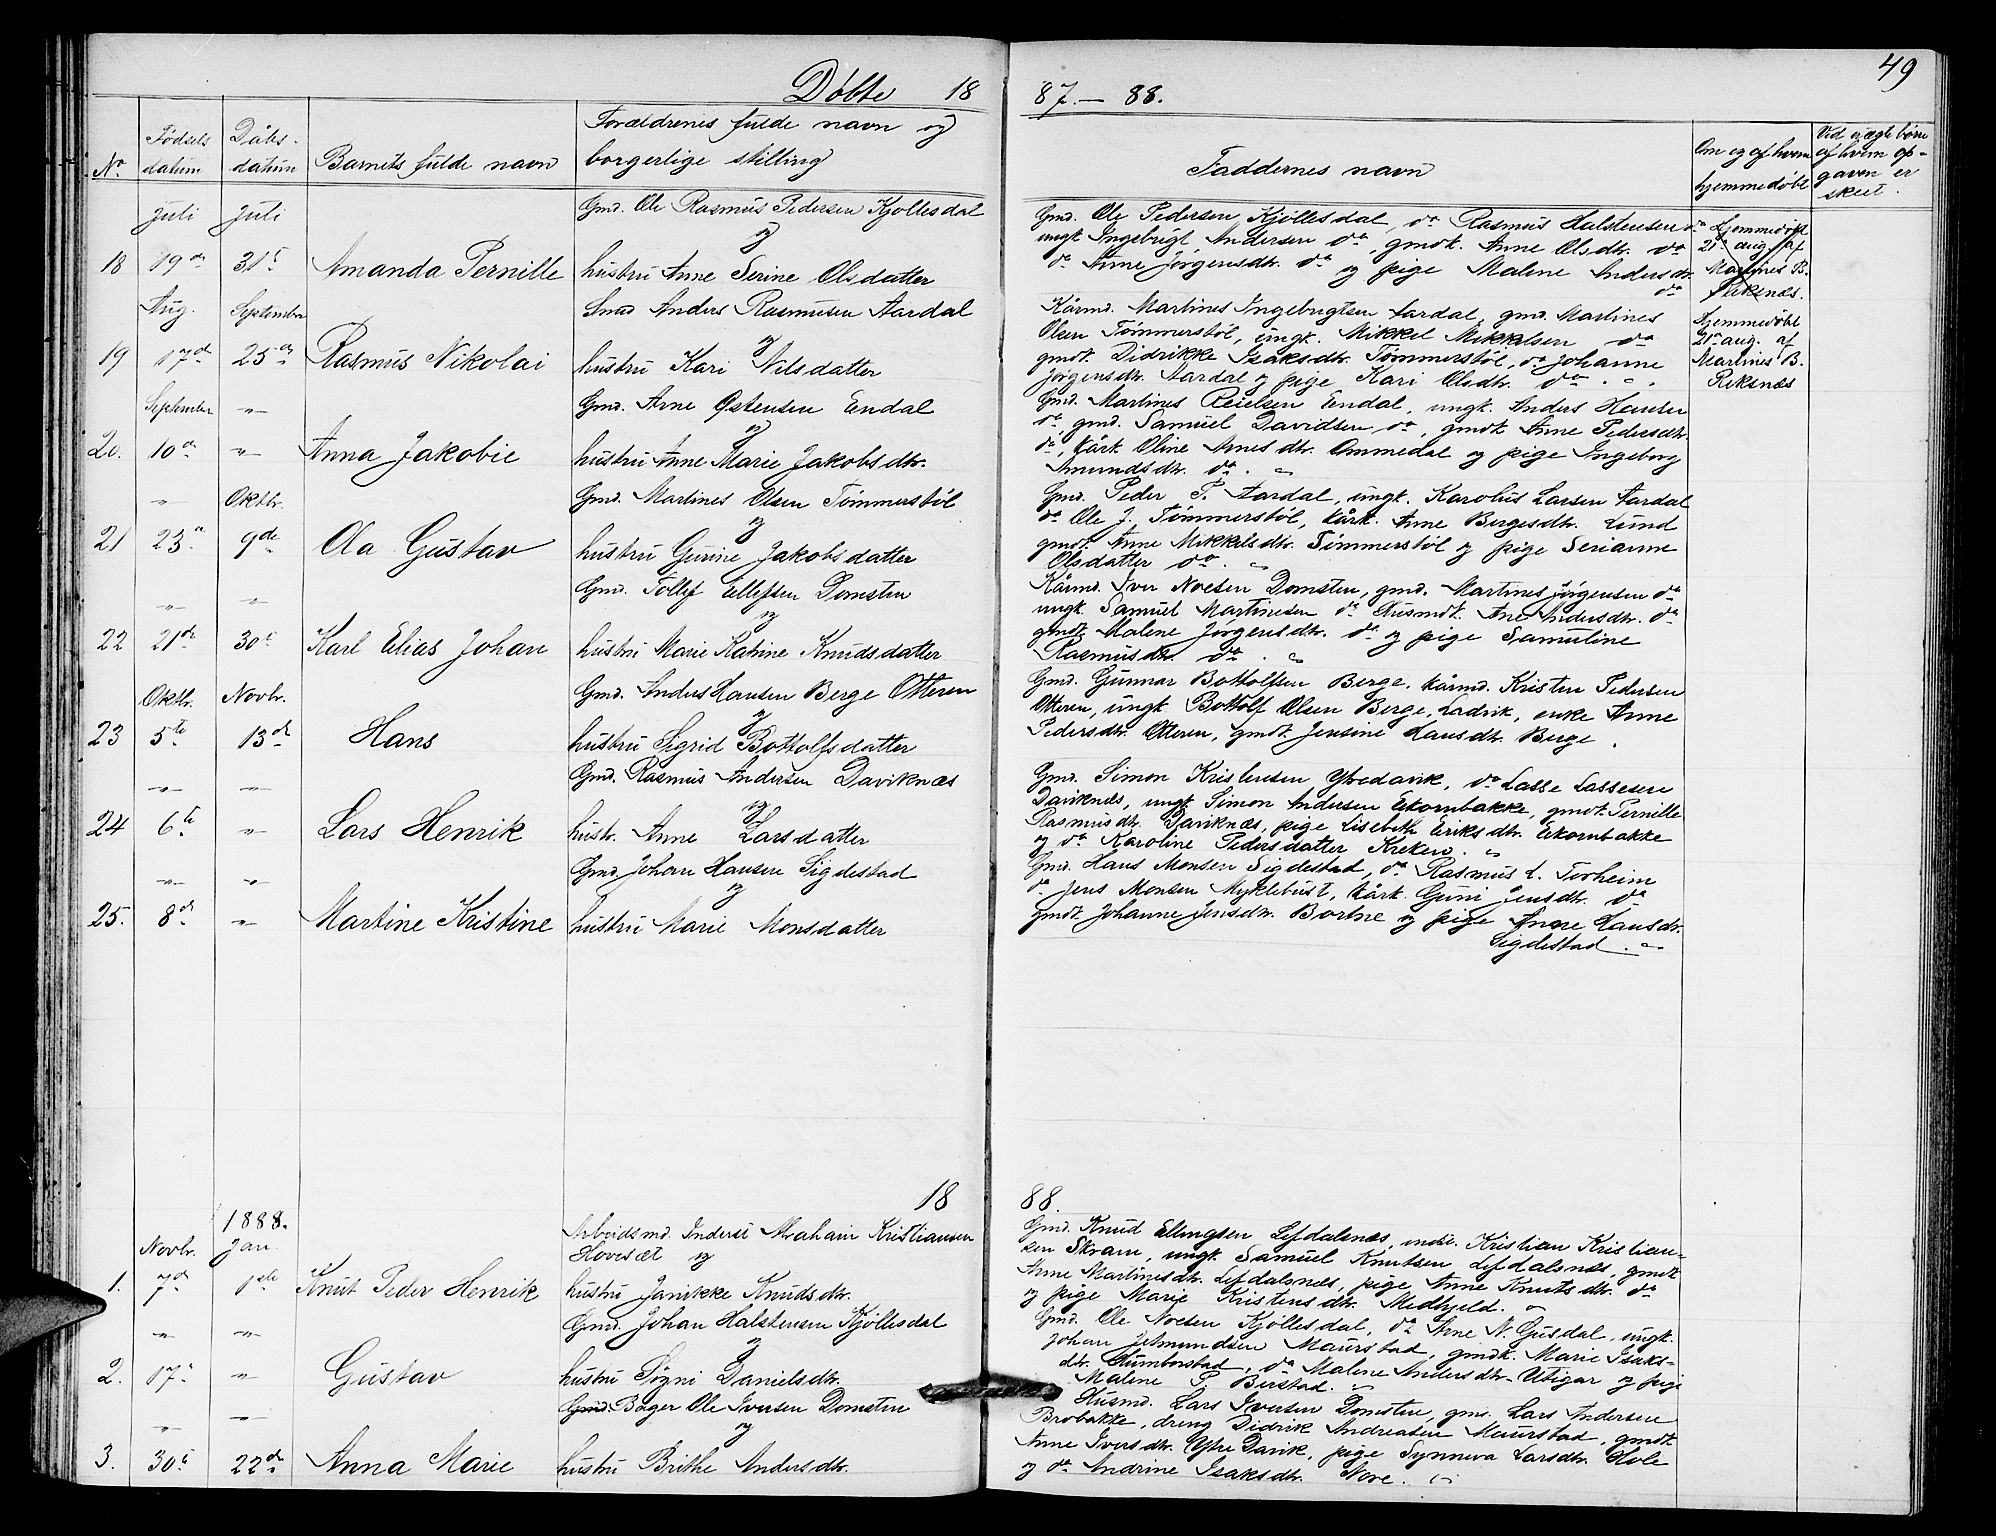 49
Døbte 1887. — 88.
No
Fødsels datum
Dåbs-datum
Barnets fulde navn
Forældrenes fulde navn og borgerlige stilling
Faddernes navn
Om og af hvem hjemmedøbt
Ved uægte børn af hvem opgaven er skeet.
Juli Juli Gmd. Ole Rasmus Pedersen Kjøllesdal
og
18 19de 31te Amanda Pernille hustru Anne Serine Olsdatter
Gmd. Ole Pedersen Kjøllesdal, do Rasmus Halstensen do
ungk. Ingebrigt Andersen do, gmdk. Anne Olsdtr. do
do Anne Jørgensdtr. do og pige Malene Andersdtr.
do
Hjemmedøbt
21de aug. af
Martines B.
Reksnes.
Aug. September Gmd Anders Rasmusen Aardal
og
19 17de 25de Rasmus Nikolai hustru Kari Nilsdatter
Kårmd. Martines Ingebrigtsen Aardal, gmd. Martines
Olsen Tømmerstøl, ungk. Mikkel Mikkelsen do
gmdk. Didrikke Isaksdtr. Tømmerstøl, do Johanne
Jørgensdtr. Aardal og pige Kari Olsdtr. do
Hjemmedøbt
21de aug. af
Martines B.
Reksnes
September -"- Gmd. Arne Østensen Endal
og
20. 10de -"- Anna Jakobie hustru Anne Marie Jakobsdtr.
Gmd. Martines Reielsen Endal, ungk. Anders Hansen
do, gmd. Samuel Davidsen do, gmdk Anne Pedersdtr.
do, kårk. Oline Arnesdtr. Ommedal og pige Ingeborg
Amundsdtr. do
-"- Oktbr. Gmd. Martines Olsen Tømmerstøl
og
21 23de 9de Ola Gustav hustru Gurine Jakobsdatter
Gmd. Peder P. Aardal, ungk. Karolus Larsen Aardal
do Ole J. Tømmerstøl, kårk. Anne Bergesdtr. Lund
gmdk. Anne Mikkelsdtr. Tømmerstøl og pige Serianne
Olsdatter do
-"- -"- Gmd. Tollef Ellefsen Domsten
og
22 21de 30te Karl Elias Johan hustru Marie Katrine Knudsdatter
Kårmd. Iver Noesen Domsten, gmd. Martines Jørgensen do
ungk. Samuel Martinesen do Husmdk. Ane Andersdtr. do
gmdk. Malene Jørgensdtr. do og pige Samuline
Rasmusdtr. do
Oktbr. Novbr. Gmd. Anders Hansen Berge Otteren
og
23 5te 13de Hans hustru Sigrid Bottolfsdatter
Gmd. Gunnar Bottolfsen Berge, kårmd. Kristen Pedersen
Otteren, ungk Bottolf Olsen Berge, Ladvik, enke Anne
Pedersdtr. Otteren, gmdk. Jensine Hansdtr. Berge.
-"- -"- Gmd. Rasmus Andersen Daviknæs
og
24 6te -"- Lars Henrik hustr. Anne Larsdatter
Gmd. Simon Kristensen Ytredavik, do Lasse Lassesen
Daviknes, ungk Simon Andersen Ekornbakke, gmdk. Pernille
Rasmusdtr. Daviknæs, pige Lisebeth Eriksdtr. Ekornbakke
og do Karoline Pedersdatter Kreken.
-"- -"- Gmd. Johan Hansen Sigdestad
og
25. 8de -"- Martine Kristine hustru Marie Monsdatter
Gmd. Hans Monsen Sigdestad, do Rasmus L. Torheim
do Jens Monsen Myklebust, kårk. Guni Jensdtr. do
gmdk. Johanne Jensdtr. Bortne og pige Anne Hansdtr.
Sigdestad.
1888.
1888.
Novbr. Jan. Arbeidsmd. Inderst Abraham Kristiansen
Hovesæt og
1. 7de 1ste Knut Peder Henrik hustru Janikke Knudsdtr.
Gmd. Knud Ellingsen Lefdalsnæs, inds. Kristian Kristian-
sen Skram, ungk. Samuel Knutsen Lefdalsnæs, gmdk
Anne Martinesdtr. Lefdalsnæs, pige Anne Knutsdtr. do
og pige Marie Kristensdtr. Medhjeld.
-"- -"- Gmd. Johan Halstensen Kjøllesdal
og
2. 17de -"- Gustav hustru Søgni Danielsdtr.
Gmd. Ole Noesen Kjøllesdal, do Arne N. Gusdal, ungk.
Johan Jetmundsen Maurstad, gmdk. Marie Isaks-
dtr. Rumborstad, do Malene Andersdtr. Utigar og pige
Malene P. Birstad.
-"- -"- Gmd. Bager Ole Iversen Domsten
og
3. 30te 22de Anna Marie hustru Brithe Andersdtr.
Husmd. Lars Iversen Domsten, gmd. Lars Andersen
Brobakke, dreng Didrik Andreasen Maurstad, gmdk
Anne Iversdtr. Ytre Davik, pige Synneva Larsdtr. Hole
og do Andrine Isaksdtr. Nore.